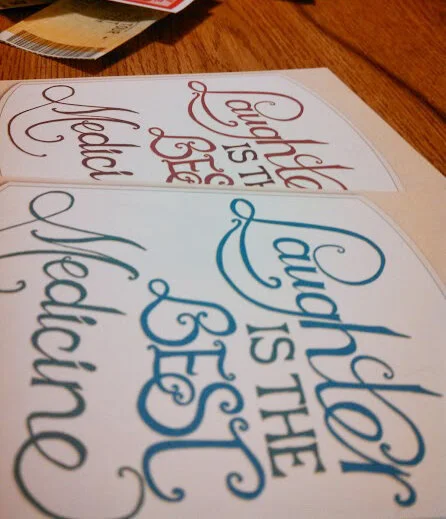 Laughter
IS THE
BEST
Medicine
Laughte
IS TH
BES
Medici